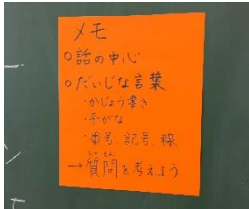 メモ
○話の中心
○だいじな言葉
・かじょう書き
・平がな
・番号、記号、線
→質問を考えよう